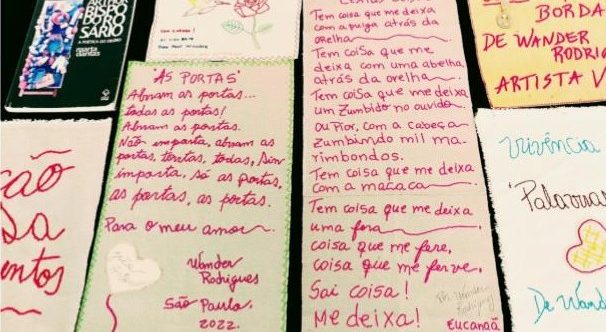 ARTHUR
BISPO
DO RO
SÁRIO
A POÉTICA DO DELÍRIO
marta
dantas
"AS PORTAS"
Abram as portas...
todas as portas!
Abram as portas.
Não importa, abram as
portas, tortas, todas, sim
importa, só as portas,
as portas, as portas.
Para o meu amor.
Wander
Rodrigues
São Paulo.
2022.
Tem coisa que me deixa
com a pulga atrás da
orelha
Tem coisa que me
deixa com uma abelha
atrás da orelha
Tem coisa que me deixa
um zumbido no ouvido
ou pior, com a cabeça
zumbindo mil ma-
rimbondos.
Tem coisa que me deixa
com a macaca
Tem coisa que me deixa
uma fera
coisa que me fere,
coisa que me ferve,
Sai coisa!
Me deixa!
Wander
Rodrigues
eucanaã
BORDA
DE WANDER
RODRIG
ARTISTA V
ção
da
entos
Vivência
"Palavras
De Wand